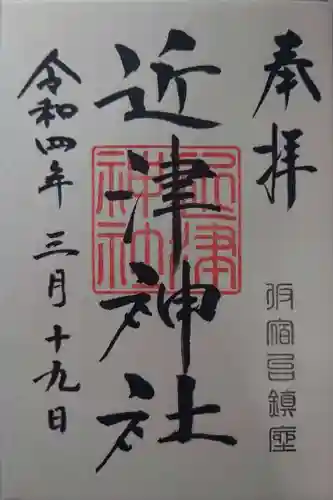 奉拝
坂宿呂鎮座
近津神社
近津神社
令和四年三月十九日